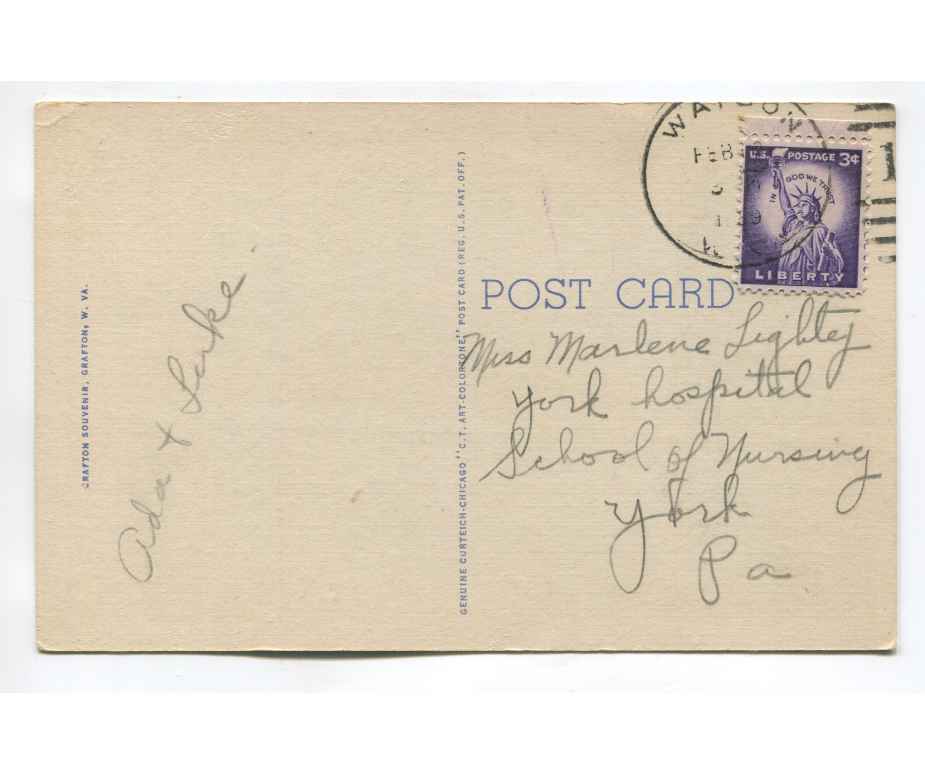 GRAFTON SOUVENIR, GRAFTON, W. VA.
Ada &
GENUINE CURTEICH-CHICAGO "C.T. ART-COLORTONE" POST CARD (REG. U.S. PAT. OFF.)
FEB
U.S. POSTAGE 3¢
IN GOD WE TRUST
LIBERTY
POST CARD
Miss Marlene Lightey
York hospital
School of Nursing
York
Pa